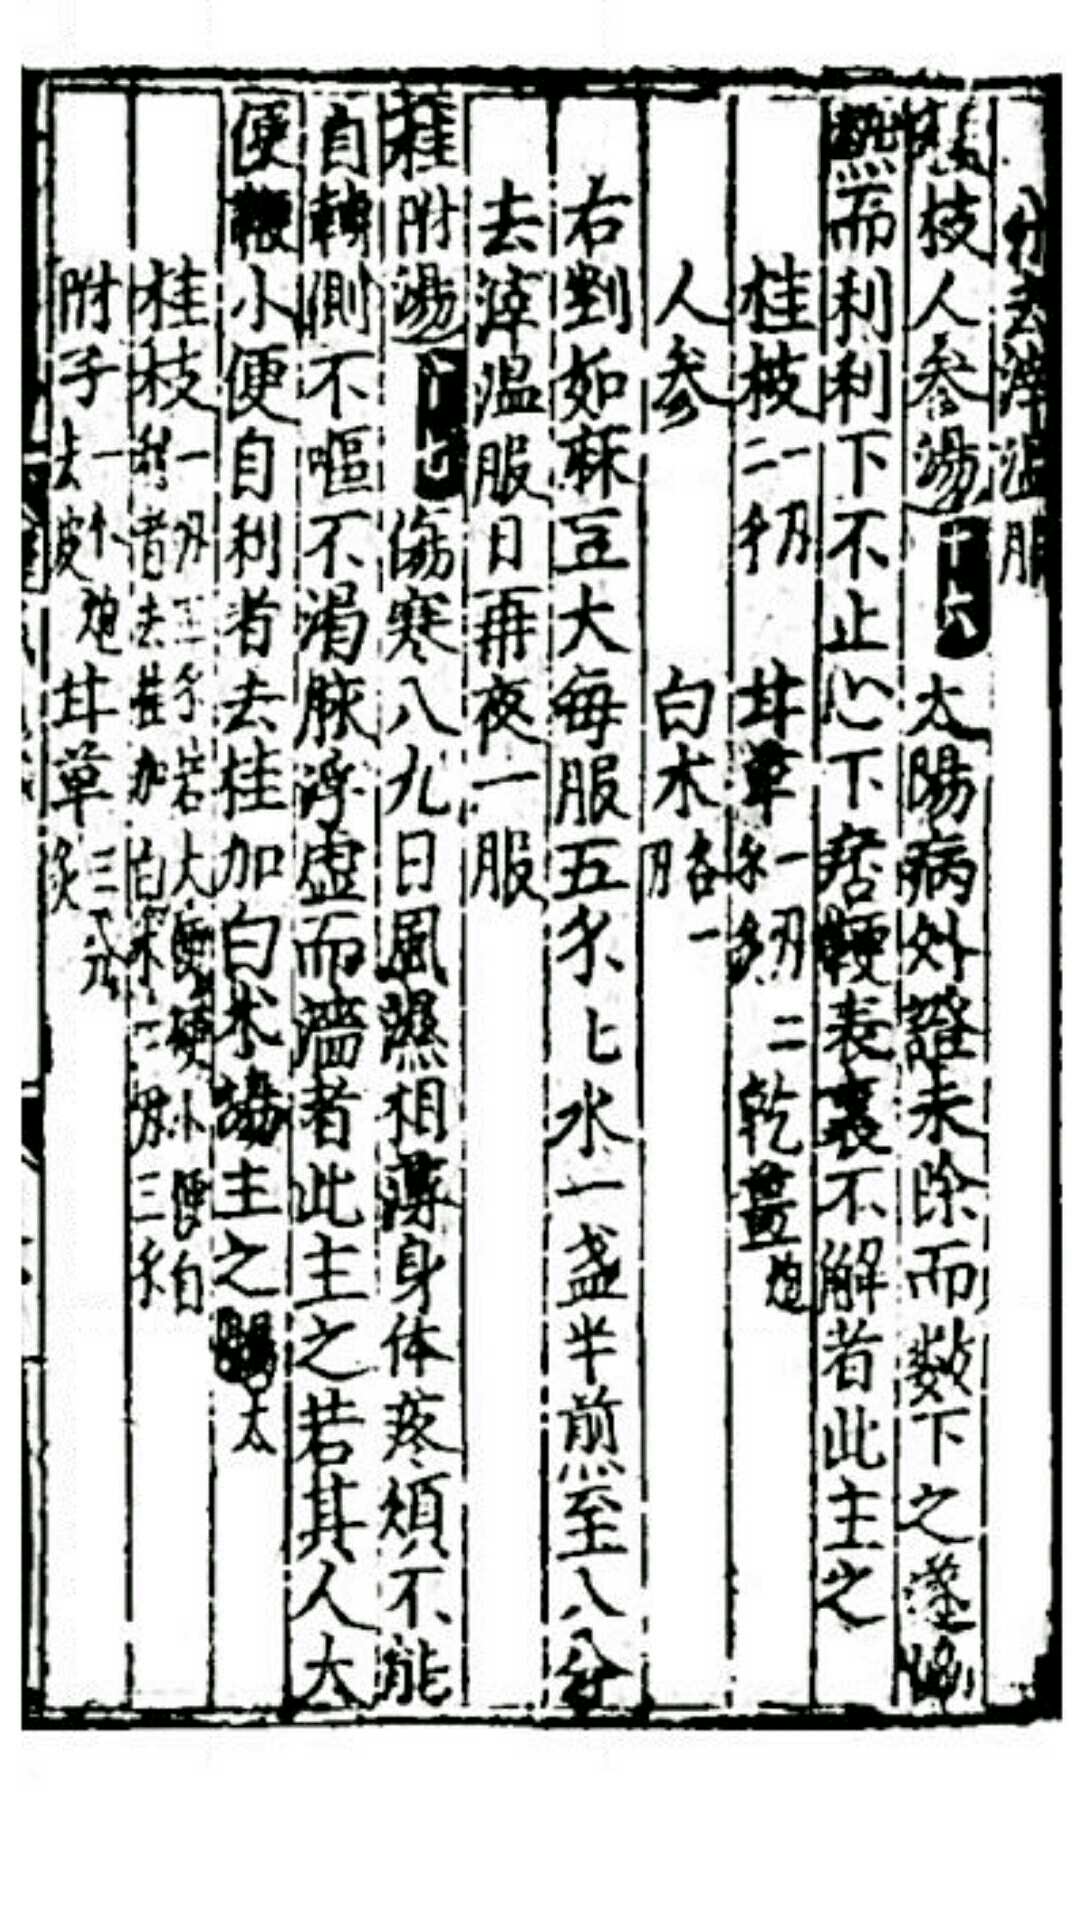 分去滓溫服
枝人參湯十六太陽病外證未除而数下之遂協
熱而利利下不止心下痞鞕表裏不解者此主之
桂枝一两二分 甘草一两二分炙 乾薑炮
人參 白术各一两
右剉如麻豆大每服五分匕水一盞半煎至八分
去滓溫服日再夜一服
桂附湯十七傷寒八九日風濕相薄身体疼煩不能
自轉側不嘔不渴脉浮虚而濇者此主之若其人大
便鞕小便自利者去桂加白术湯主之太陽
桂枝一两三分若大便硬小便自利者去桂加白术一两三分
附子一个炮去皮 甘草三分炙